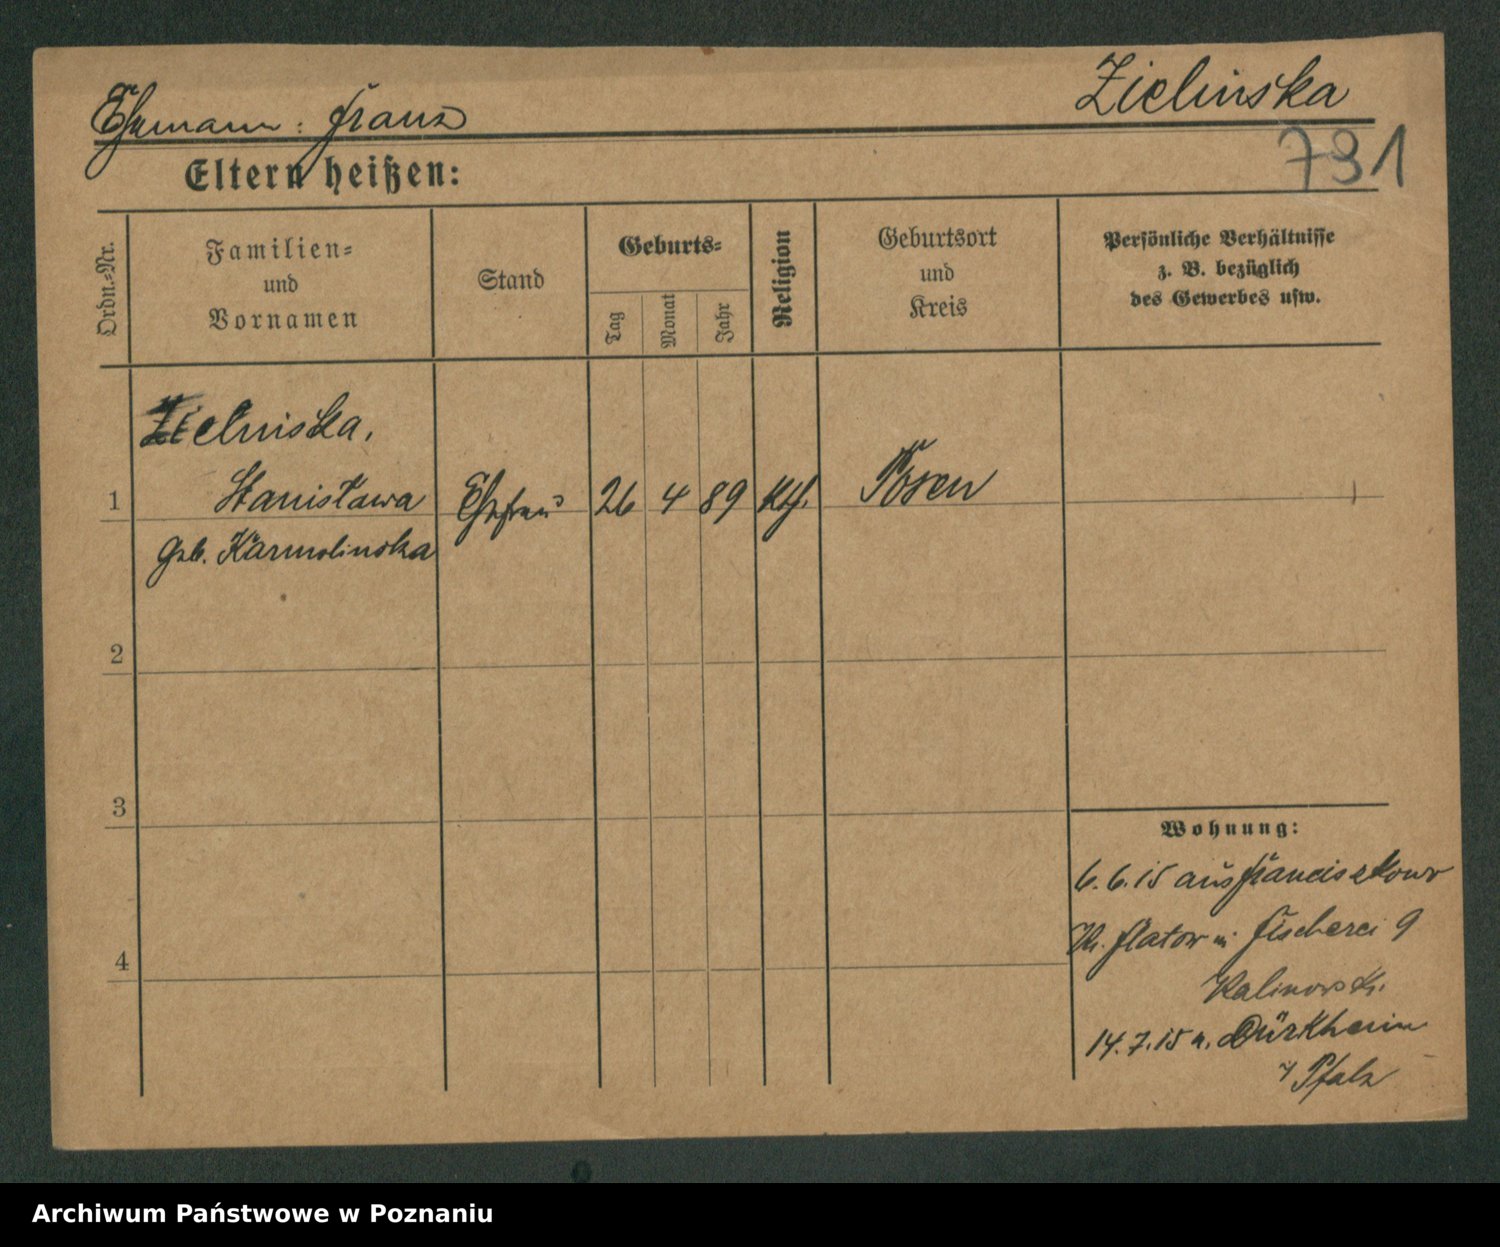 Ehemann: Franz
Zielinska
791
Eltern heißen:
Ordn.=Nr.
Familien=
und
Vornamen
Stand
Geburts=
Tag
Monat
Jahr
Religion
Geburtsort
und
Kreis
Persönliche Verhältnisse
z. B. bezüglich
des Gewerbes usw.
Zielinska,
1 Stanisława Ehefrau 26 4 89 kth. Posen
geb. Karmolinska
2
3
4
Wohnung:
6.6.15 aus Franciszkowo
Kr. Flatow n Fischerei 9
Kalinowski.
14.7.15 n. Dürkheim
Pfalz
Archiwum Państwowe w Poznaniu